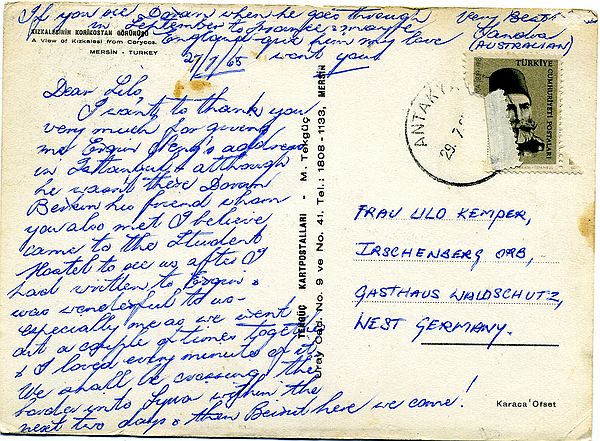 If you see Doram when he goes through
in September to France & maybe
England give him my love
won't you.
Very Best
(AUSTRALIAN)
KIZKALESİNİN KORİKOSTAN GÖRÜNÜŞÜ
A View of Kızkalesi from Corycos.
MERSİN - TURKEY
27/7/65
Dear Lilo,
I want to thank you
very much for giving
me Ergin address
in Istanbul & although
he wasn't there Doram
his friend whom
you also met I believe
came to the Student
Hostel to see us after I
had written to Ergin &
was wonderful to us –
especially me as we went
out a couple of times together
& I loved every minute of it.
We shall be crossing the
border into Syria within the
next two days & then Beirut here we come!
TEKGÜÇ KARTPOSTALLARI - M. Tekgüç
Uray Cad. No. 9 ve No. 41, Tel.: 1808 - 1133, MERSİN
TÜRKİYE
CUMHURİYETİ POSTALARI
ANTAKYA
29.7.
FRAU LILO KEMPER,
IRSCHENBERG OBB,
GASTHAUS WALDSCHUTZ,
WEST GERMANY.
Karaca Ofset